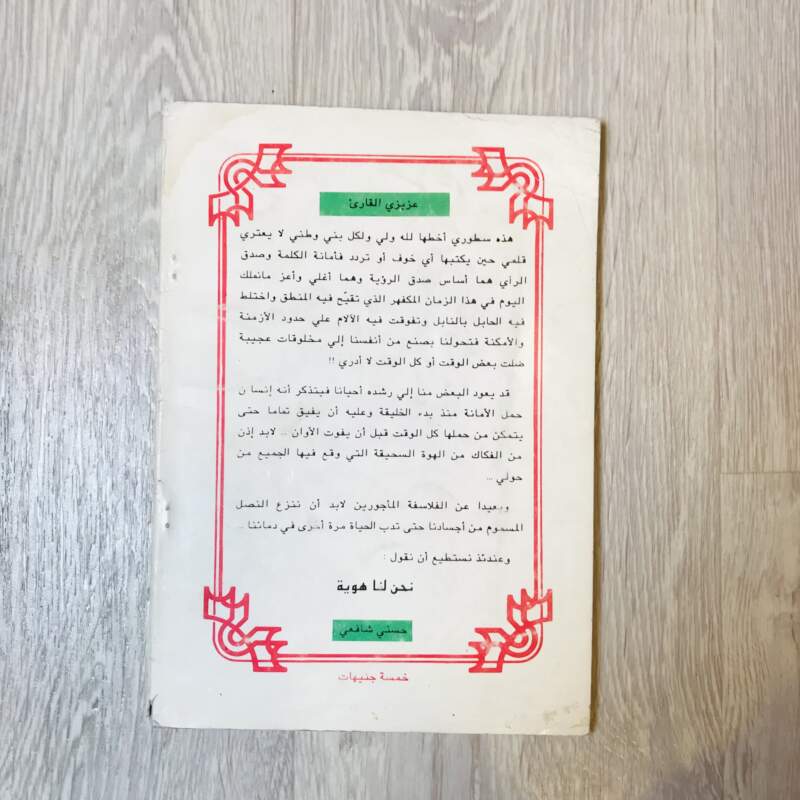 عزيزي القارئ:
هذه سطوري أخطها لله ولي ولكل بني وطني لا يعتري
قلمي حين يكتبها أي خوف أو تردد فأمانة الكلمة وصدق
الرأي هما أساس صدق الرؤية وهما أغلي وأعز مانملك
اليوم في هذا الزمان المكفهر الذي تقيّح فيه المنطق واختلط
فيه الحابل بالنابل وتفوقت فيه الآلام علي حدود الأزمنة
والأمكنة فتحولنا بصنع من أنفسنا إلي مخلوقات عجيبة
ضلت بعض الوقت أو كل الوقت لا أدري !!
قد يعود البعض منا إلي رشده أحيانا فيتذكر أنه إنسان
حمل الأمانة منذ بدء الخليقة وعليه أن يفيق تماما حتى
يتمكن من حملها كل الوقت قبل أن يفوت الأوان .. لابد إذن
من الفكاك من الهوة السحيقة التي وقع فيها الجميع من
حولي ..
وبعيدا عن الفلاسفة المأجورين لابد أن ننزع النصل
المسموم من أجسادنا حتى تدب الحياة مرة أخرى في دمائنا ..
وعندئذ نستطيع أن نقول :
نحن لنا هوية
حسني شافعي
خمسة جنيهات